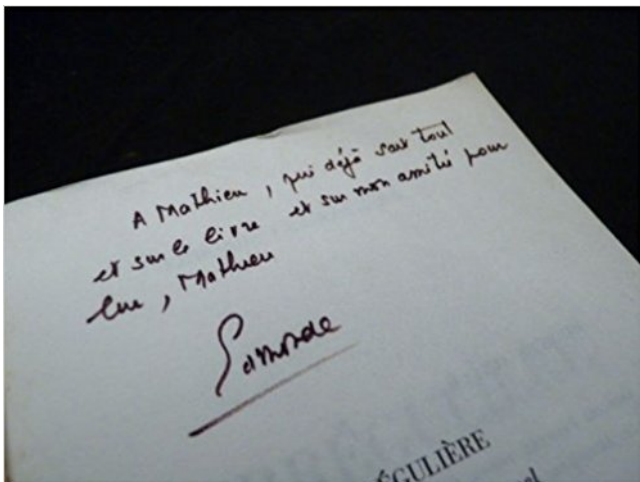 A Mathieu, qui déjà sait tout
et sur le livre et sur mon amitié pour
lui, Mathieu
ÉGULIÈRE